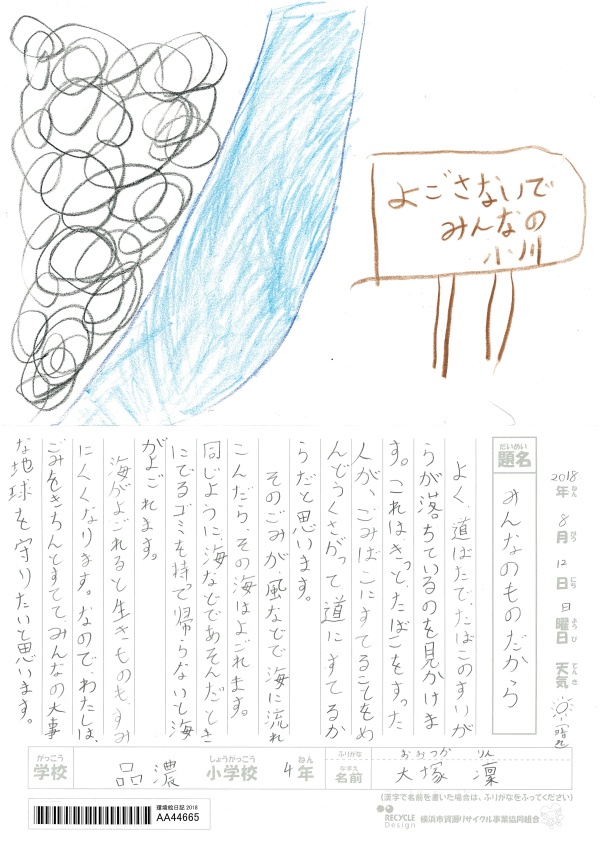 よごさないで
みんなの
小川
2018年ねん 8月がつ 12日にち 日曜日ようび 天気てんき (晴れ)
だいめい
題名
みんなのものだから
よく、道ばたで、たばこのすいが
らが落ちているのを見かけま
す。これはきっと、たばこをすった
人が、ごみばこにすてることをめ
んどうくさがって道にすてるか
らだと思います。
そのごみが風などで海に流れ
こんだら、その海はよごれます。
同じように、海などであそんだとき
にでるゴミを持って帰らないと海
がよごれます。
海がよごれると生きものも、すみ
にくくなります。なので、わたしは、
ごみをきちんとすてて、みんなの大事
な地球を守りたいと思います。
がっこう しょうがっこう ねん ふりがな おおつか りん
学校 品濃 小学校 4年 なまえ 名前 大塚 凜
(漢字で名前を書いた場合は、ふりがなをふってください)
環境絵日記 2018
AA44665
RECYCLE Design 横浜市資源リサイクル事業協同組合